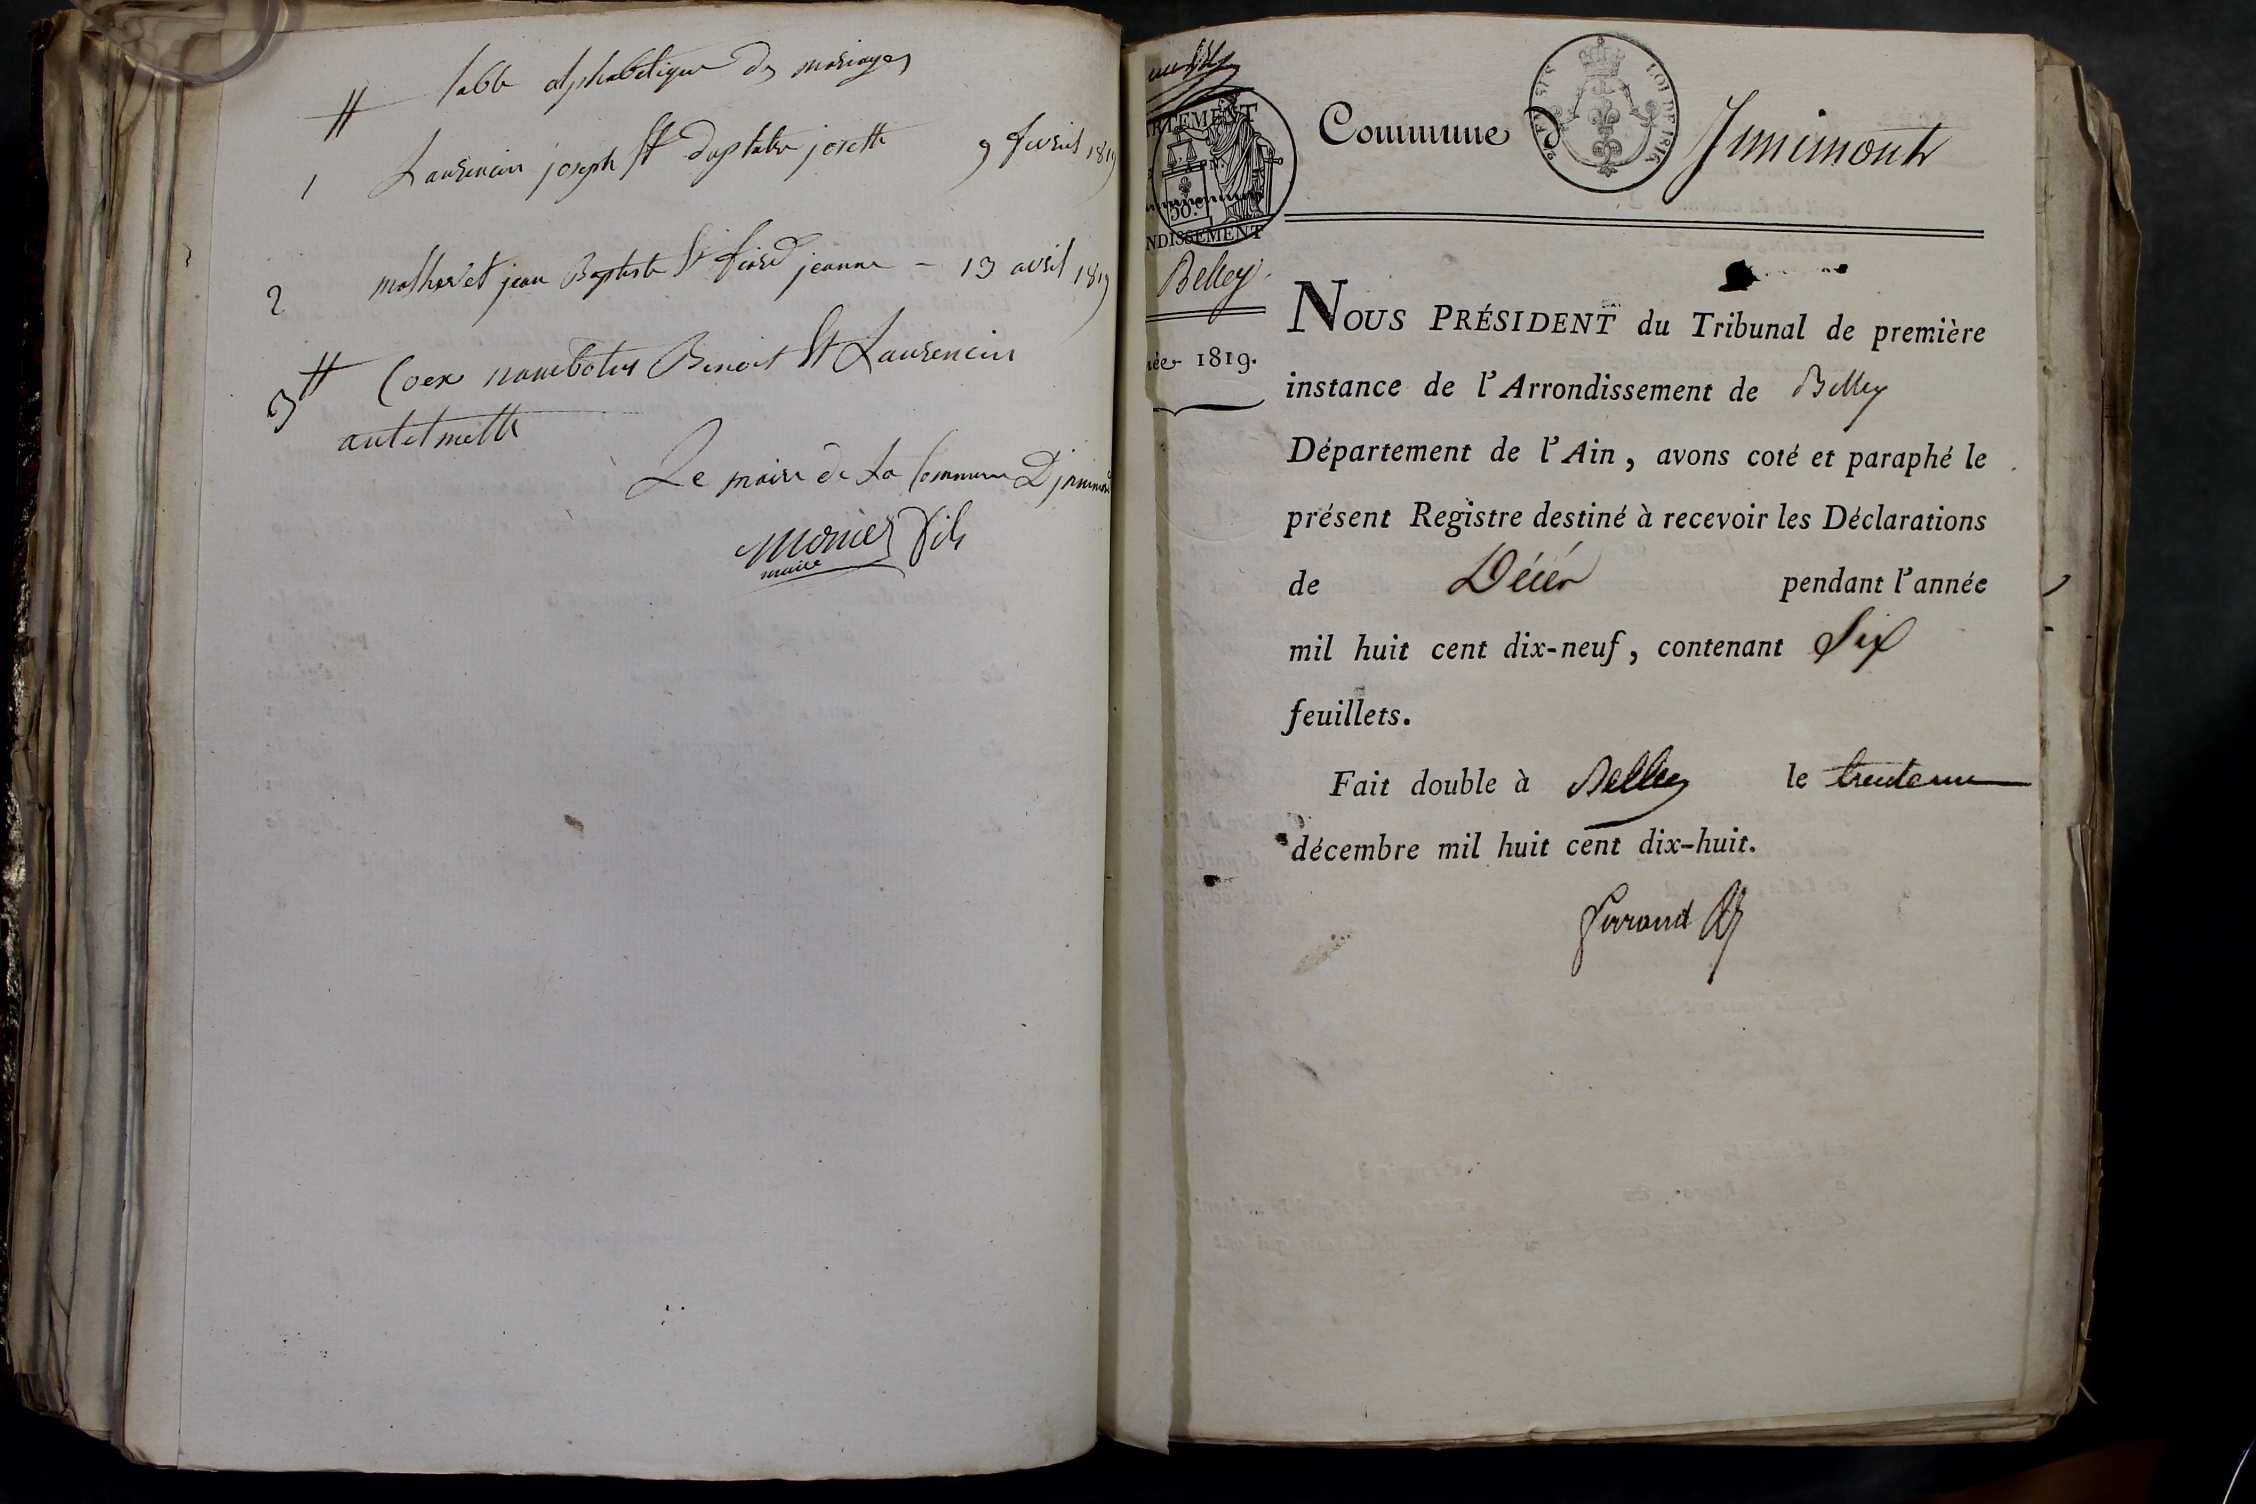 table alphabetique des mariages
1 Laurencin joseph et josette 9 fevrié 1819
2 jean Baptiste et jeanne - 13 avril 1819
3 Coex Benoit et Laurencin
Le maire de la Commune D'
monier fils
maire
RTEMENT
50.c
NDISSEMENT
Belley
née 1819.
Commune D'
LOI DE 1816
Jnnimont
NOUS PRÉSIDENT du Tribunal de première
instance de l'Arrondissement de Belley
Département de l'Ain, avons coté et paraphé le
présent Registre destiné à recevoir les Déclarations
de Décés pendant l'année
mil huit cent dix-neuf, contenant Six
feuillets.
Fait double à Belley le trente un
décembre mil huit cent dix-huit.